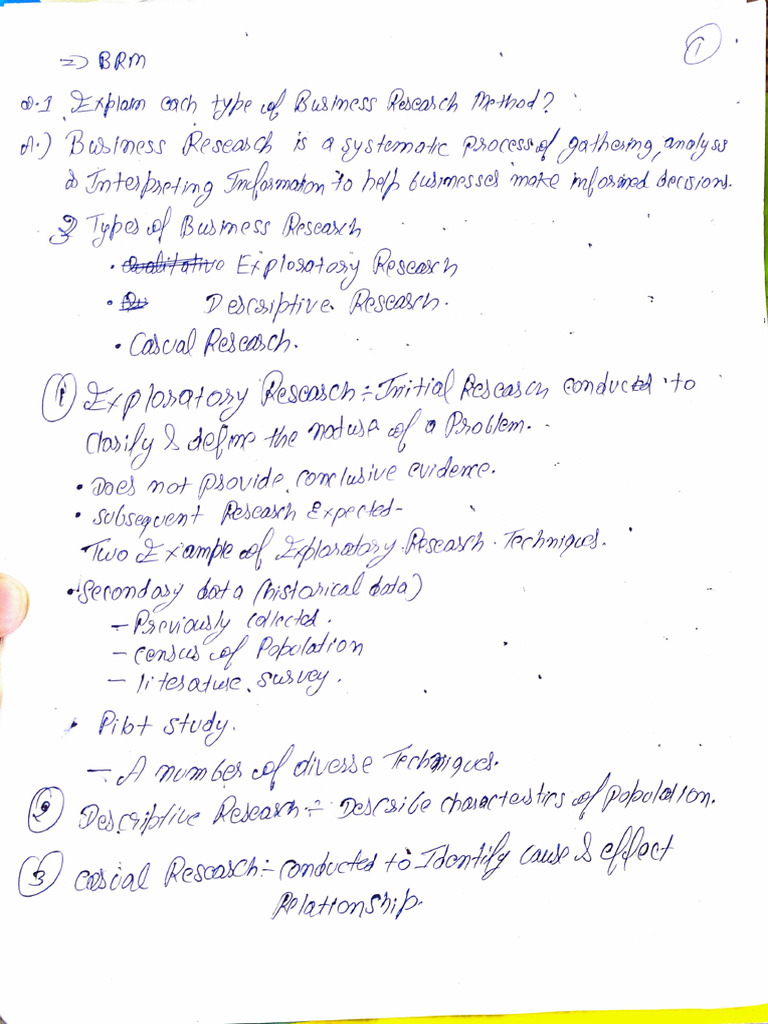 1
=> BRM
Q.1 Explain each type of Business Research Method?
A.) Business Research is a systematic process of gathering, analysis
& Interpreting Information to help businesses make informed decisions.
Types of Business Research
• Qualitative Exploratory Research
• Descriptive Research.
• Casual Research.
1 Exploratory Research :- Initial Research conducted to
Clarify & define the nature of a Problem.
• Does not provide conclusive evidence.
• Subsequent Research Expected-
Two Example of Exploratory Research Techniques.
• Secondary data (historical data)
- Previously collected.
- Census of Population
- literature survey.
• Pilot study.
- A number of diverse Techniques.
2 Descriptive Research :- Describe characteristics of population.
3 Casual Research :- conducted to Identify cause & effect
Relationship.